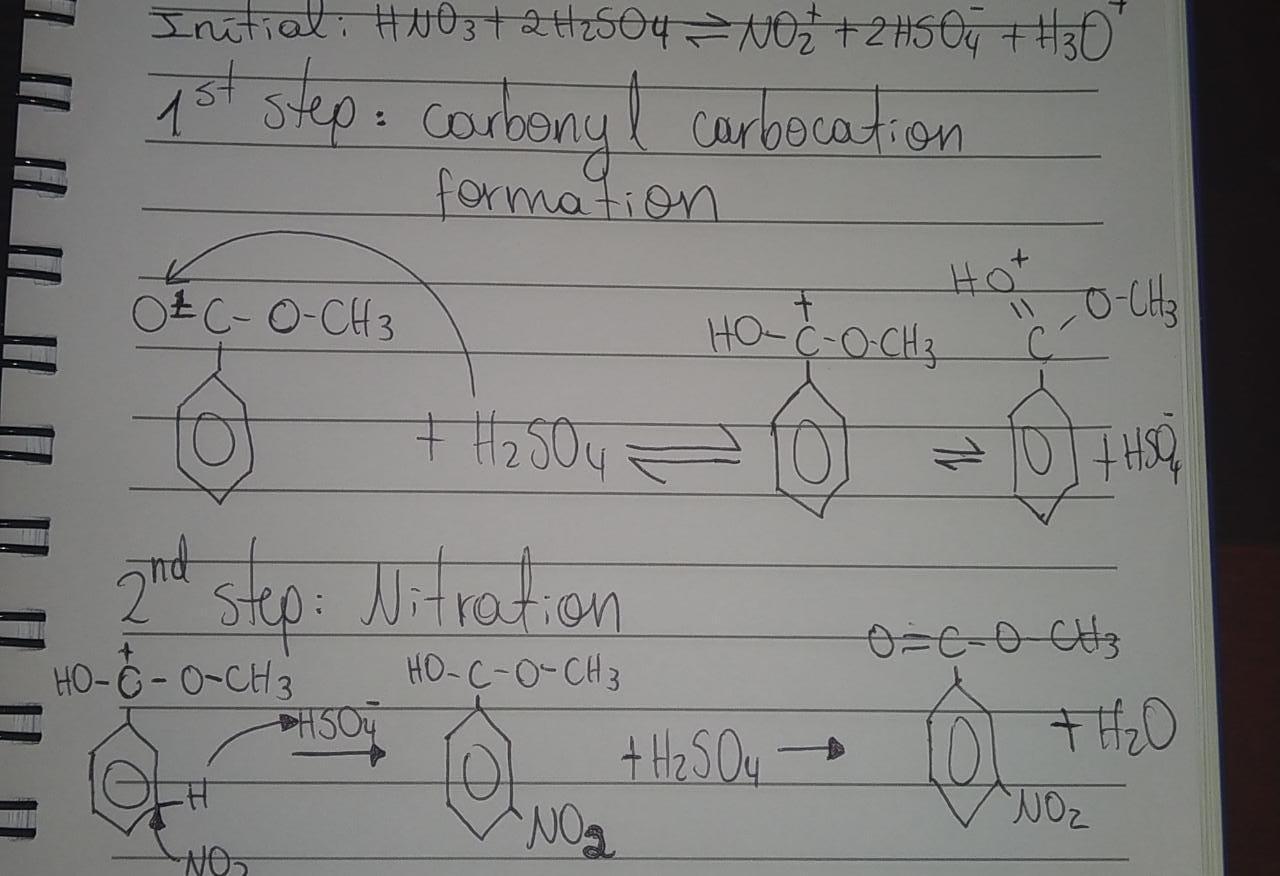 Initial: HNO3 + 2H2SO4 ⇌ NO2+ + 2HSO4- + H3O+
1st step: carbonyl carbocation
formation
HO+
O=C-O-CH3
HO-C+-O-CH3
C-O-CH3
+ H2SO4 ⇌ ⇌ + HSO4-
2nd step: Nitration
O=C-O-CH3
HO-C+-O-CH3
HO-C-O-CH3
HSO4-
+ H2SO4 → + H2O
H
NO2
NO2
NO2